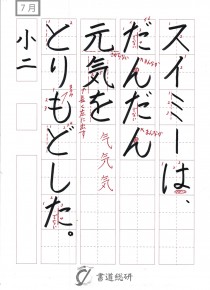 7月
スイミーは、
だんだん
元気を
とりもどした。
小二
气気気
書道総研